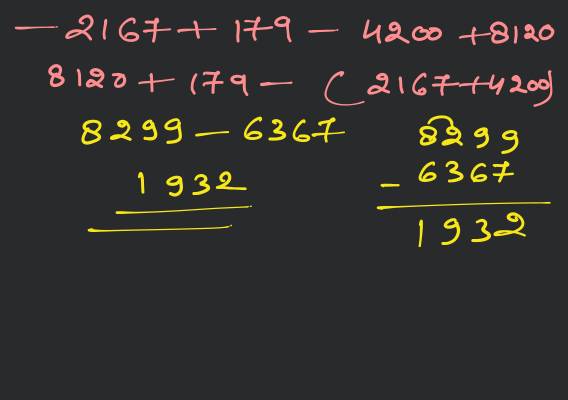 - 2167 + 179 - 4200 + 8120
8120 + 179 - (2167+4200)
8299 - 6367
1932
8299
- 6367
1932